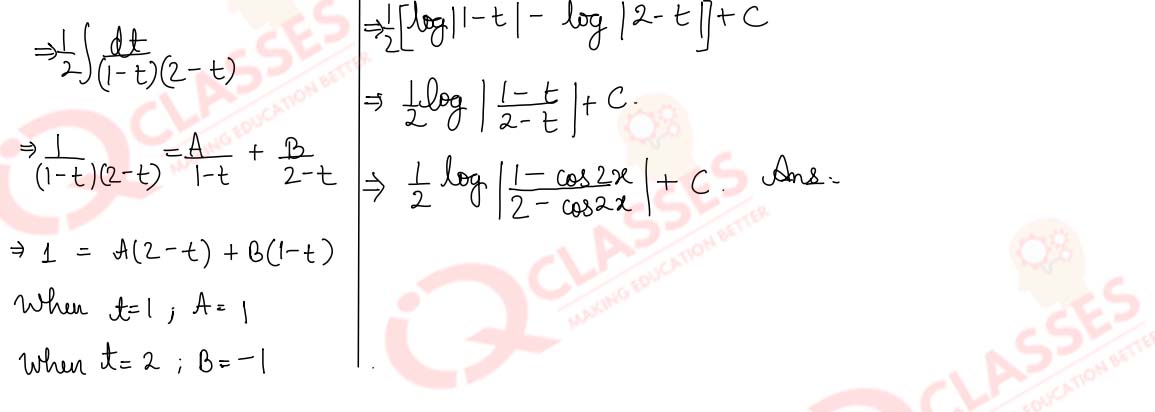 ⇒ 1/2 ∫ dt/(1-t)(2-t)
⇒ 1/(1-t)(2-t) = A/1-t + B/2-t
⇒ 1 = A(2-t) + B(1-t)
When t=1 ; A= 1
When t= 2 ; B= -1
⇒ 1/2 [log|1-t| - log |2-t|] + C
⇒ 1/2 log |1-t/2-t| + C.
⇒ 1/2 log |1-cos2x/2-cos2x| + C. Ans.
IQ CLASSES
MAKING EDUCATION BETTER
IQ CLASSES
MAKING EDUCATION BETTER
CLASSES
EDUCATION BETTER